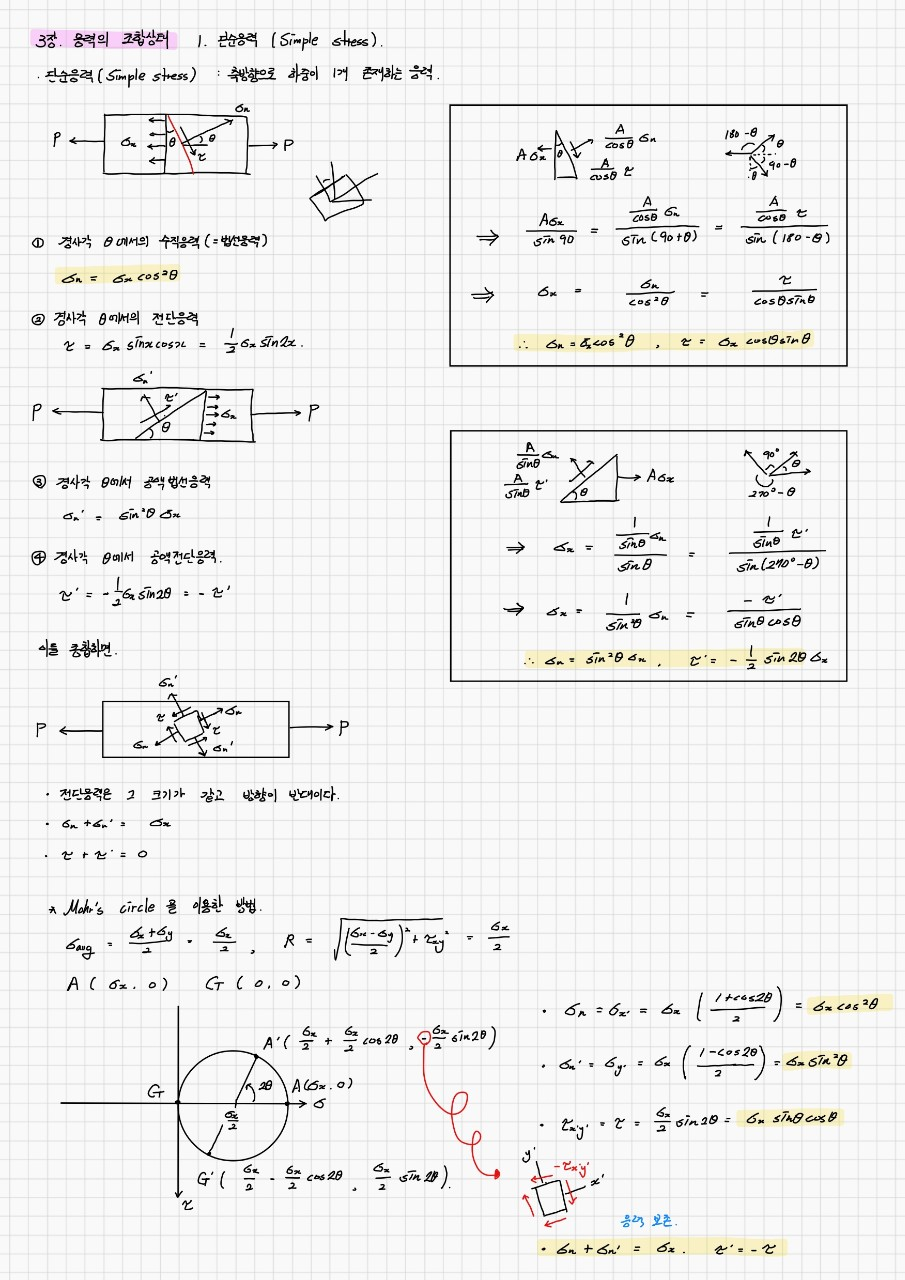 3장. 응력의 조합상태 1. 단순응력 (Simple stress).
· 단순응력 (Simple stress) : 축방향으로 하중이 1개 존재하는 응력.
P σx θ σn θ τ P
① 경사각 θ에서의 수직응력 (=법선응력)
σn = σx cos²θ
② 경사각 θ에서의 전단응력
τ = σx sinx cosx = 1/2 σx sin2x.
P σn' τ' θ σx P
③ 경사각 θ에서 공액법선응력
σn' = sin²θ σx
④ 경사각 θ에서 공액전단응력.
τ' = -1/2 σx sin2θ = - τ'
이를 종합하면.
P σn' τ σn τ σn σn' P
· 전단응력은 그 크기가 같고 방향이 반대이다.
· σn + σn' = σx
· τ + τ' = 0
Aσx θ A/cosθ σn A/cosθ τ
180-θ θ 90-θ θ
⇒ Aσx/sin90 = A/cosθ σn / sin(90+θ) = A/cosθ τ / sin(180-θ)
⇒ σx = σn/cos²θ = τ/cosθsinθ
∴ σn = σx cos²θ , τ = σx cosθsinθ
A/sinθ σn A/sinθ τ' θ Aσx
90° θ 270°-θ
⇒ σx = 1/sinθ σn / sinθ = 1/sinθ τ' / sin(270°-θ)
⇒ σx = 1/sin²θ σn = -τ'/sinθcosθ
∴ σn = sin²θ σx , τ' = -1/2 sin2θ σx
* Mohr's circle을 이용한 방법.
σavg = σx+σy/2 = σx/2 , R = √((σx-σy/2)² + τxy²) = σx/2
A ( σx, 0 ) G ( 0, 0 )
A' ( σx/2 + σx/2 cos2θ , -σx/2 sin2θ)
G 2θ A(σx, 0)
σx/2 σ
G' ( σx/2 - σx/2 cos2θ , σx/2 sin2θ).
τ
· σn = σx' = σx (1+cos2θ/2) = σx cos²θ
· σn' = σy' = σx (1-cos2θ/2) = σx sin²θ
· τx'y' = τ = σx/2 sin2θ = σx sinθcosθ
y' -τx'y' x'
응력 보존.
· σn + σn' = σx. τ' = -τ